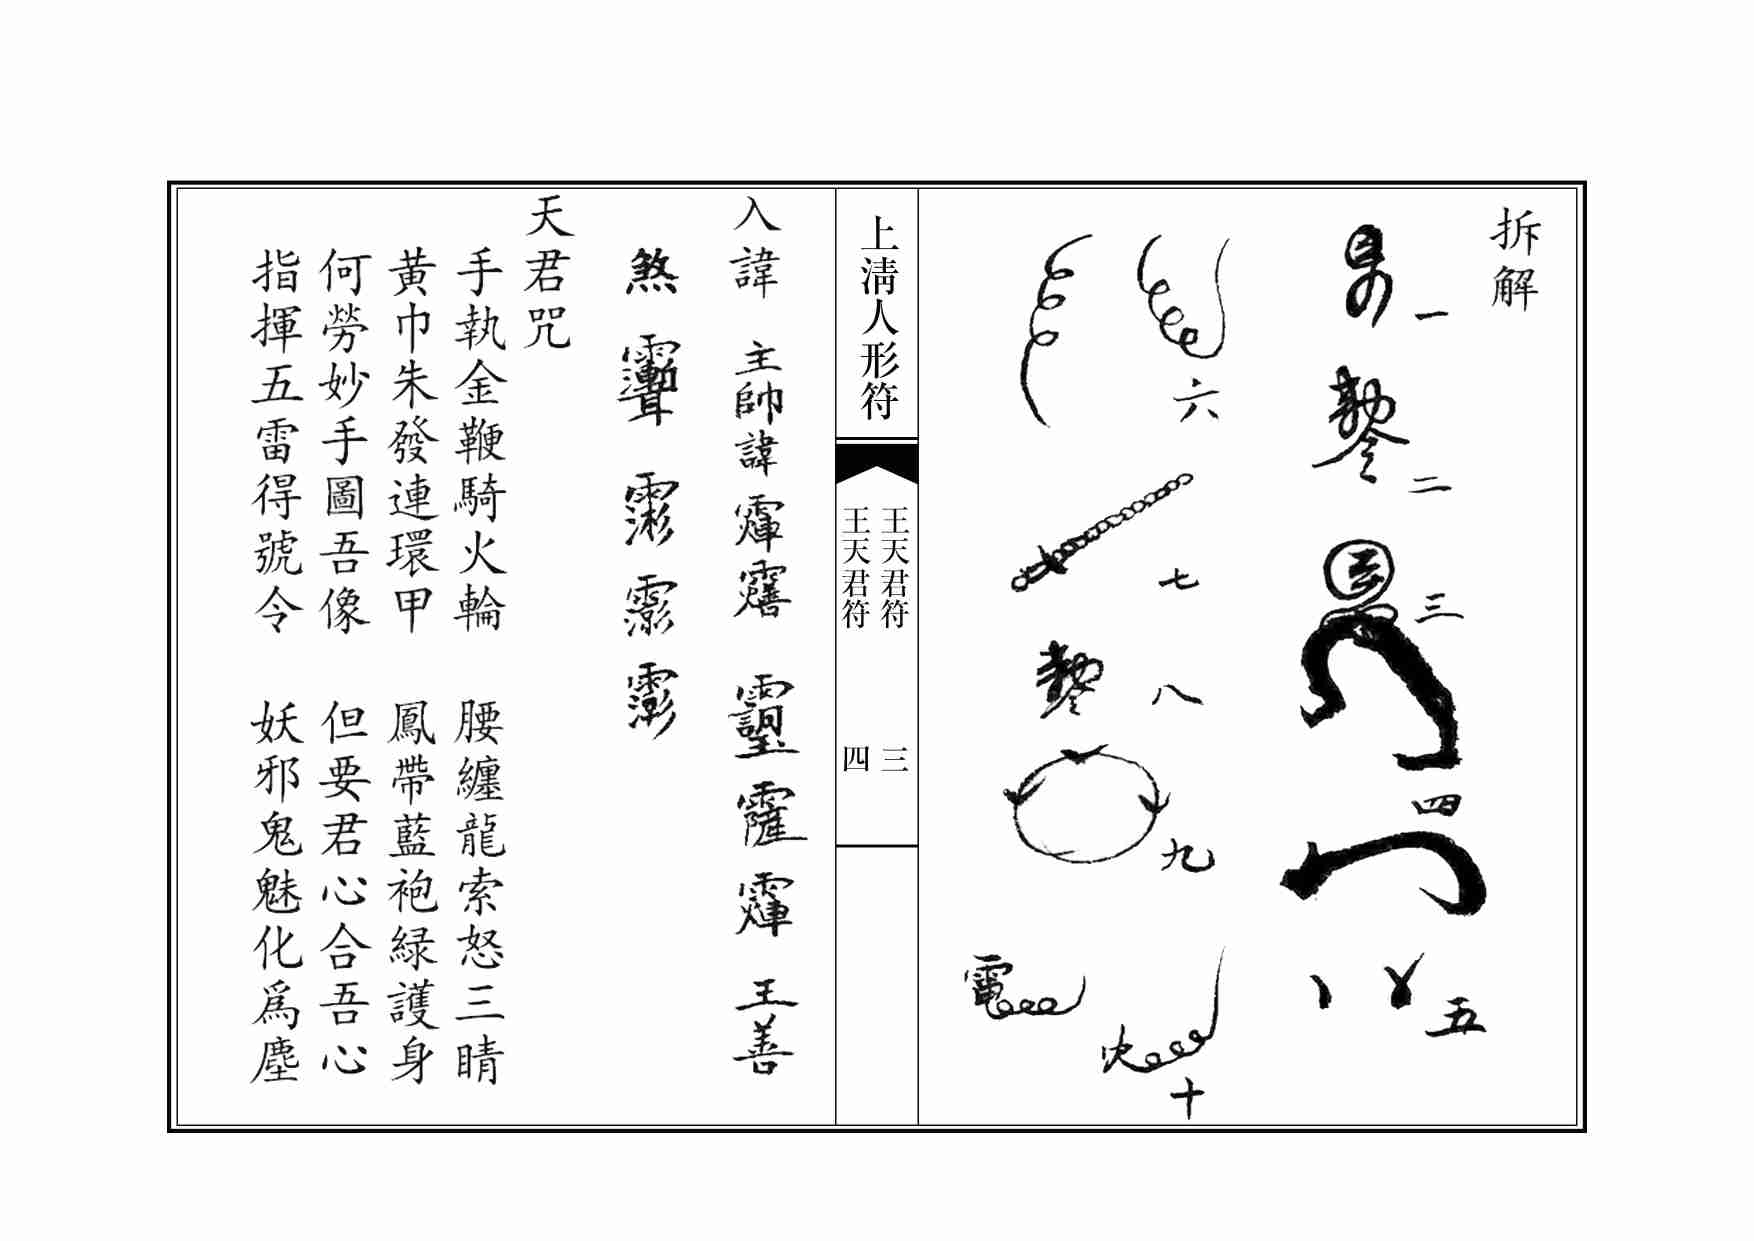 拆解
一
二
三
四
五
六
七
八
九
電
火
十
上淸人形符
王天君符 三
王天君符 四
入諱 主帥諱
王善
煞
天君咒
手執金鞭騎火輪 腰纏龍索怒三睛
黃巾朱發連環甲 鳳帶藍袍緑護身
何勞妙手圖吾像 但要君心合吾心
指揮五雷得號令 妖邪鬼魅化爲塵